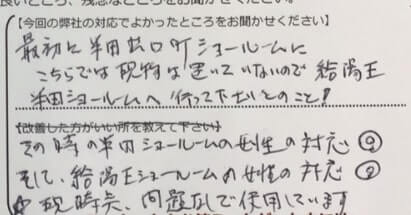 良いところ、残念なところをお聞かせください。
【今回の弊社の対応でよかったところをお聞かせください】
最初に半田出口町ショールームに
こちらでは現物は置いていないので給湯王
半田ショールームへ行って下さいとのこと!
【改善した方がいい所を教えて下さい】
その時の半田ショールームの女性の対応◎
そして、給湯王ショールームの女性の対応◎
現時点、問題なしで使用しています